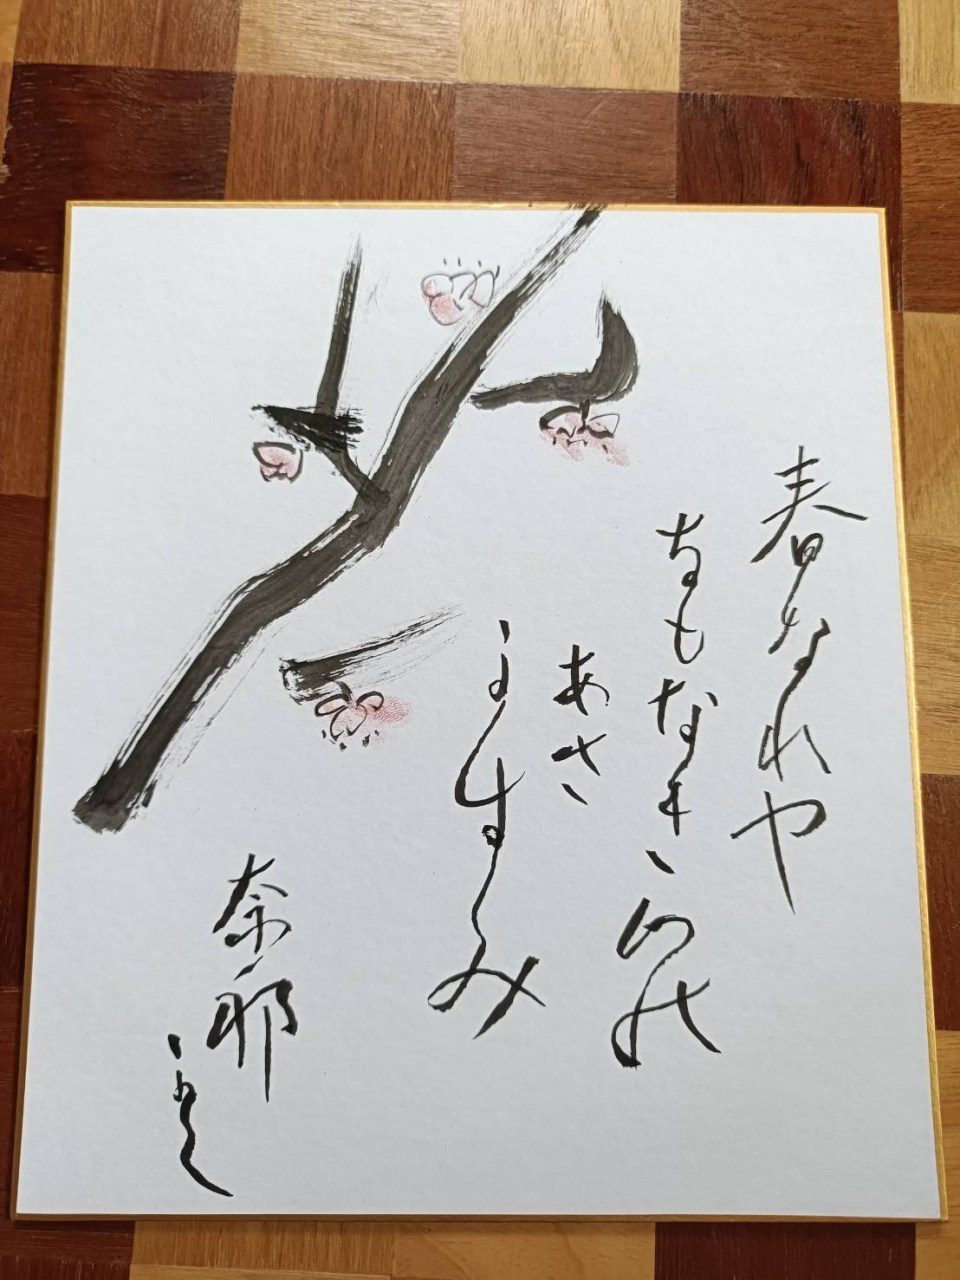 春なれや
なもなき山の
あさ
かすみ
奈耶